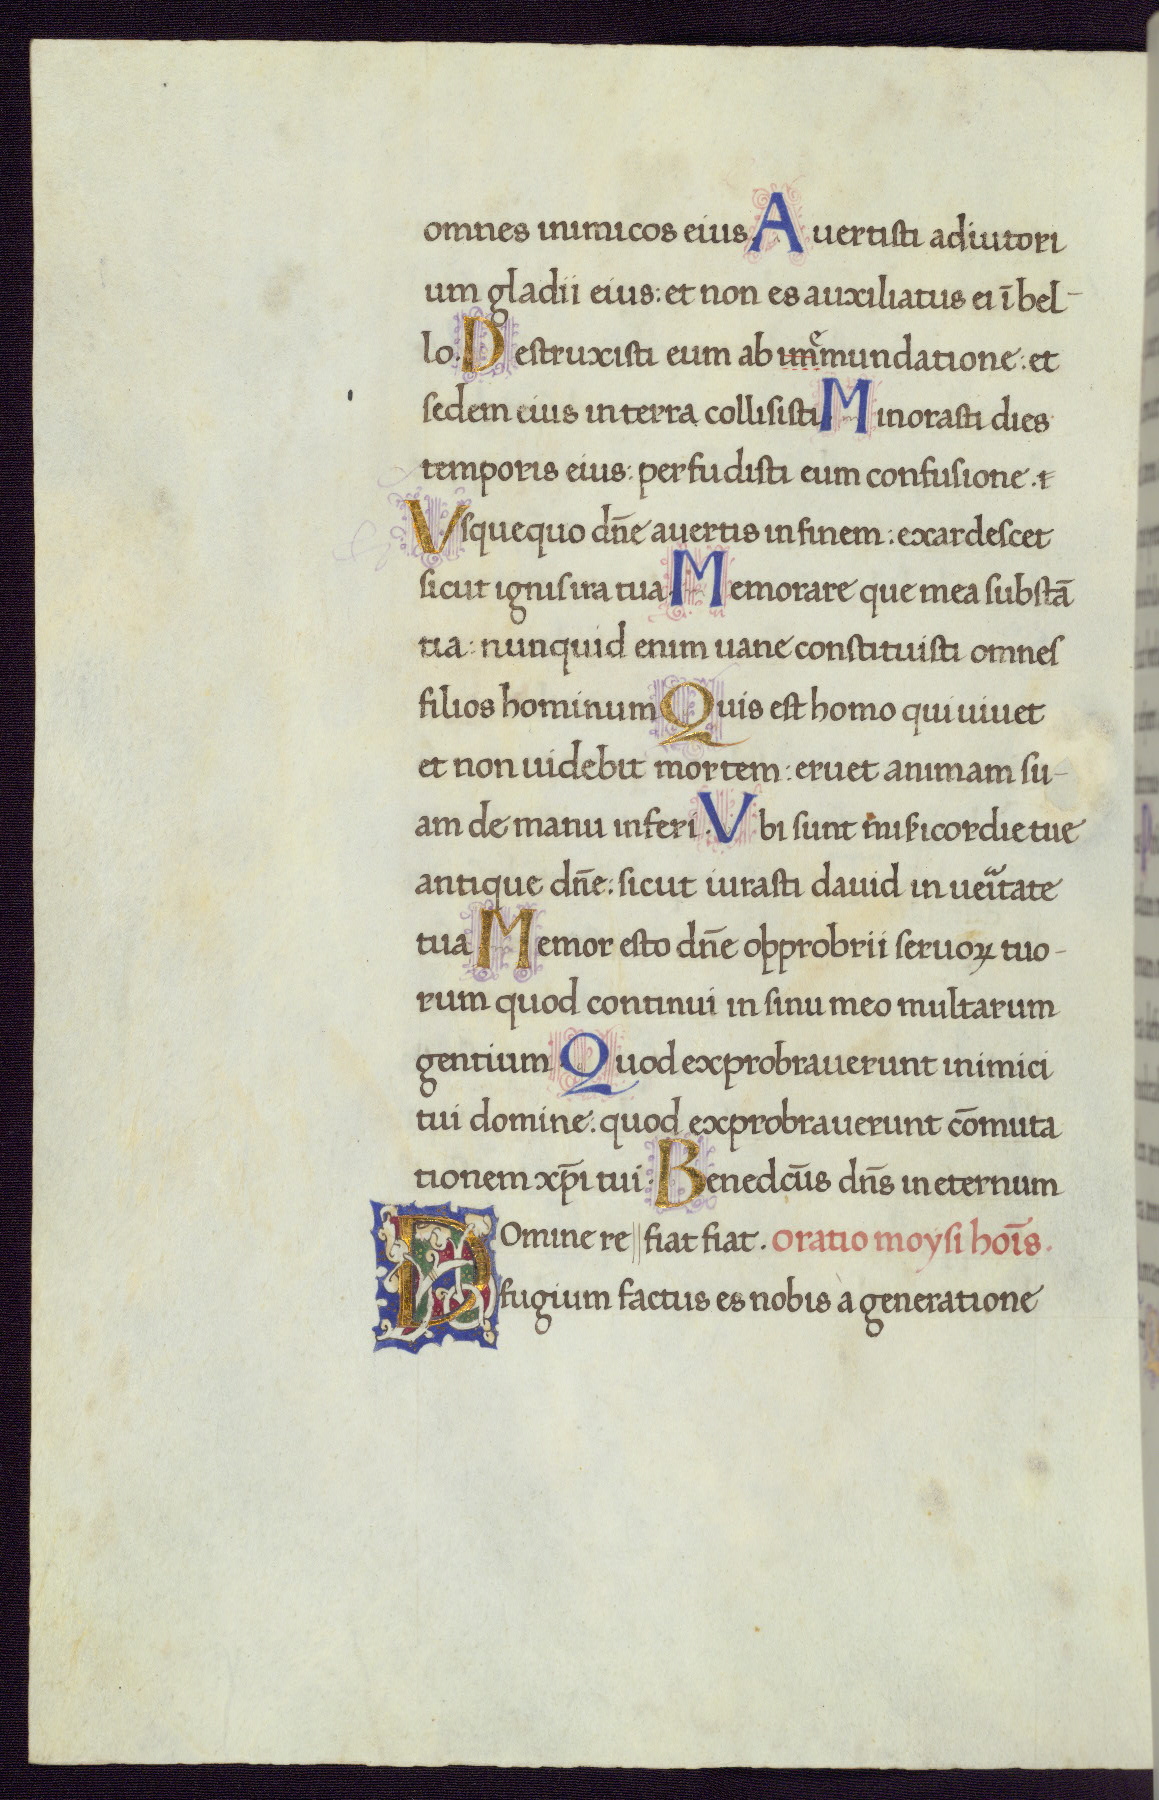 omnes inimicos eius. Auertisti adiutori
um gladii eius: et non es auxiliatus ei ī bel-
lo. Destruxisti eum ab im̄emundatione: et
sedem eius in terra collisisti. Minorasti dies
temporis eius: perfudisti eum confusione.
Vsquequo dn̄e auertis in finem: exardescet
sicut ignis ira tua. Memorare que mea substā
tia: nunquid enim uane constituisti omnes
filios hominum. Quis est homo qui uiuet
et non uidebit mortem: eruet animam su-
am de manu inferi. Vbi sunt misicordie tue
antique dn̄e: sicut iurasti dauid in ueitate
tua. Memor esto dn̄e opprobrii seruoꝝ tuo-
rum quod continui in sinu meo multarum
gentium. Quod exprobrauerunt inimici
tui domine. quod exprobrauerunt cōmuta
tionem xp̄i tui. Benedcūs dn̄s in eternum
Domine re || fiat fiat. Oratio moysi hoīs.
fugium factus es nobis a generatione